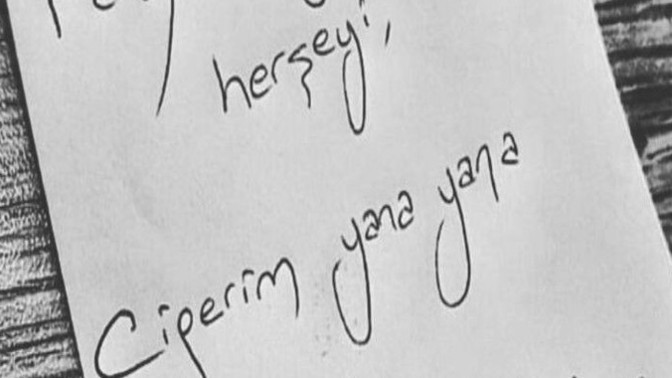 herşeyi,
Ciperim yana yana